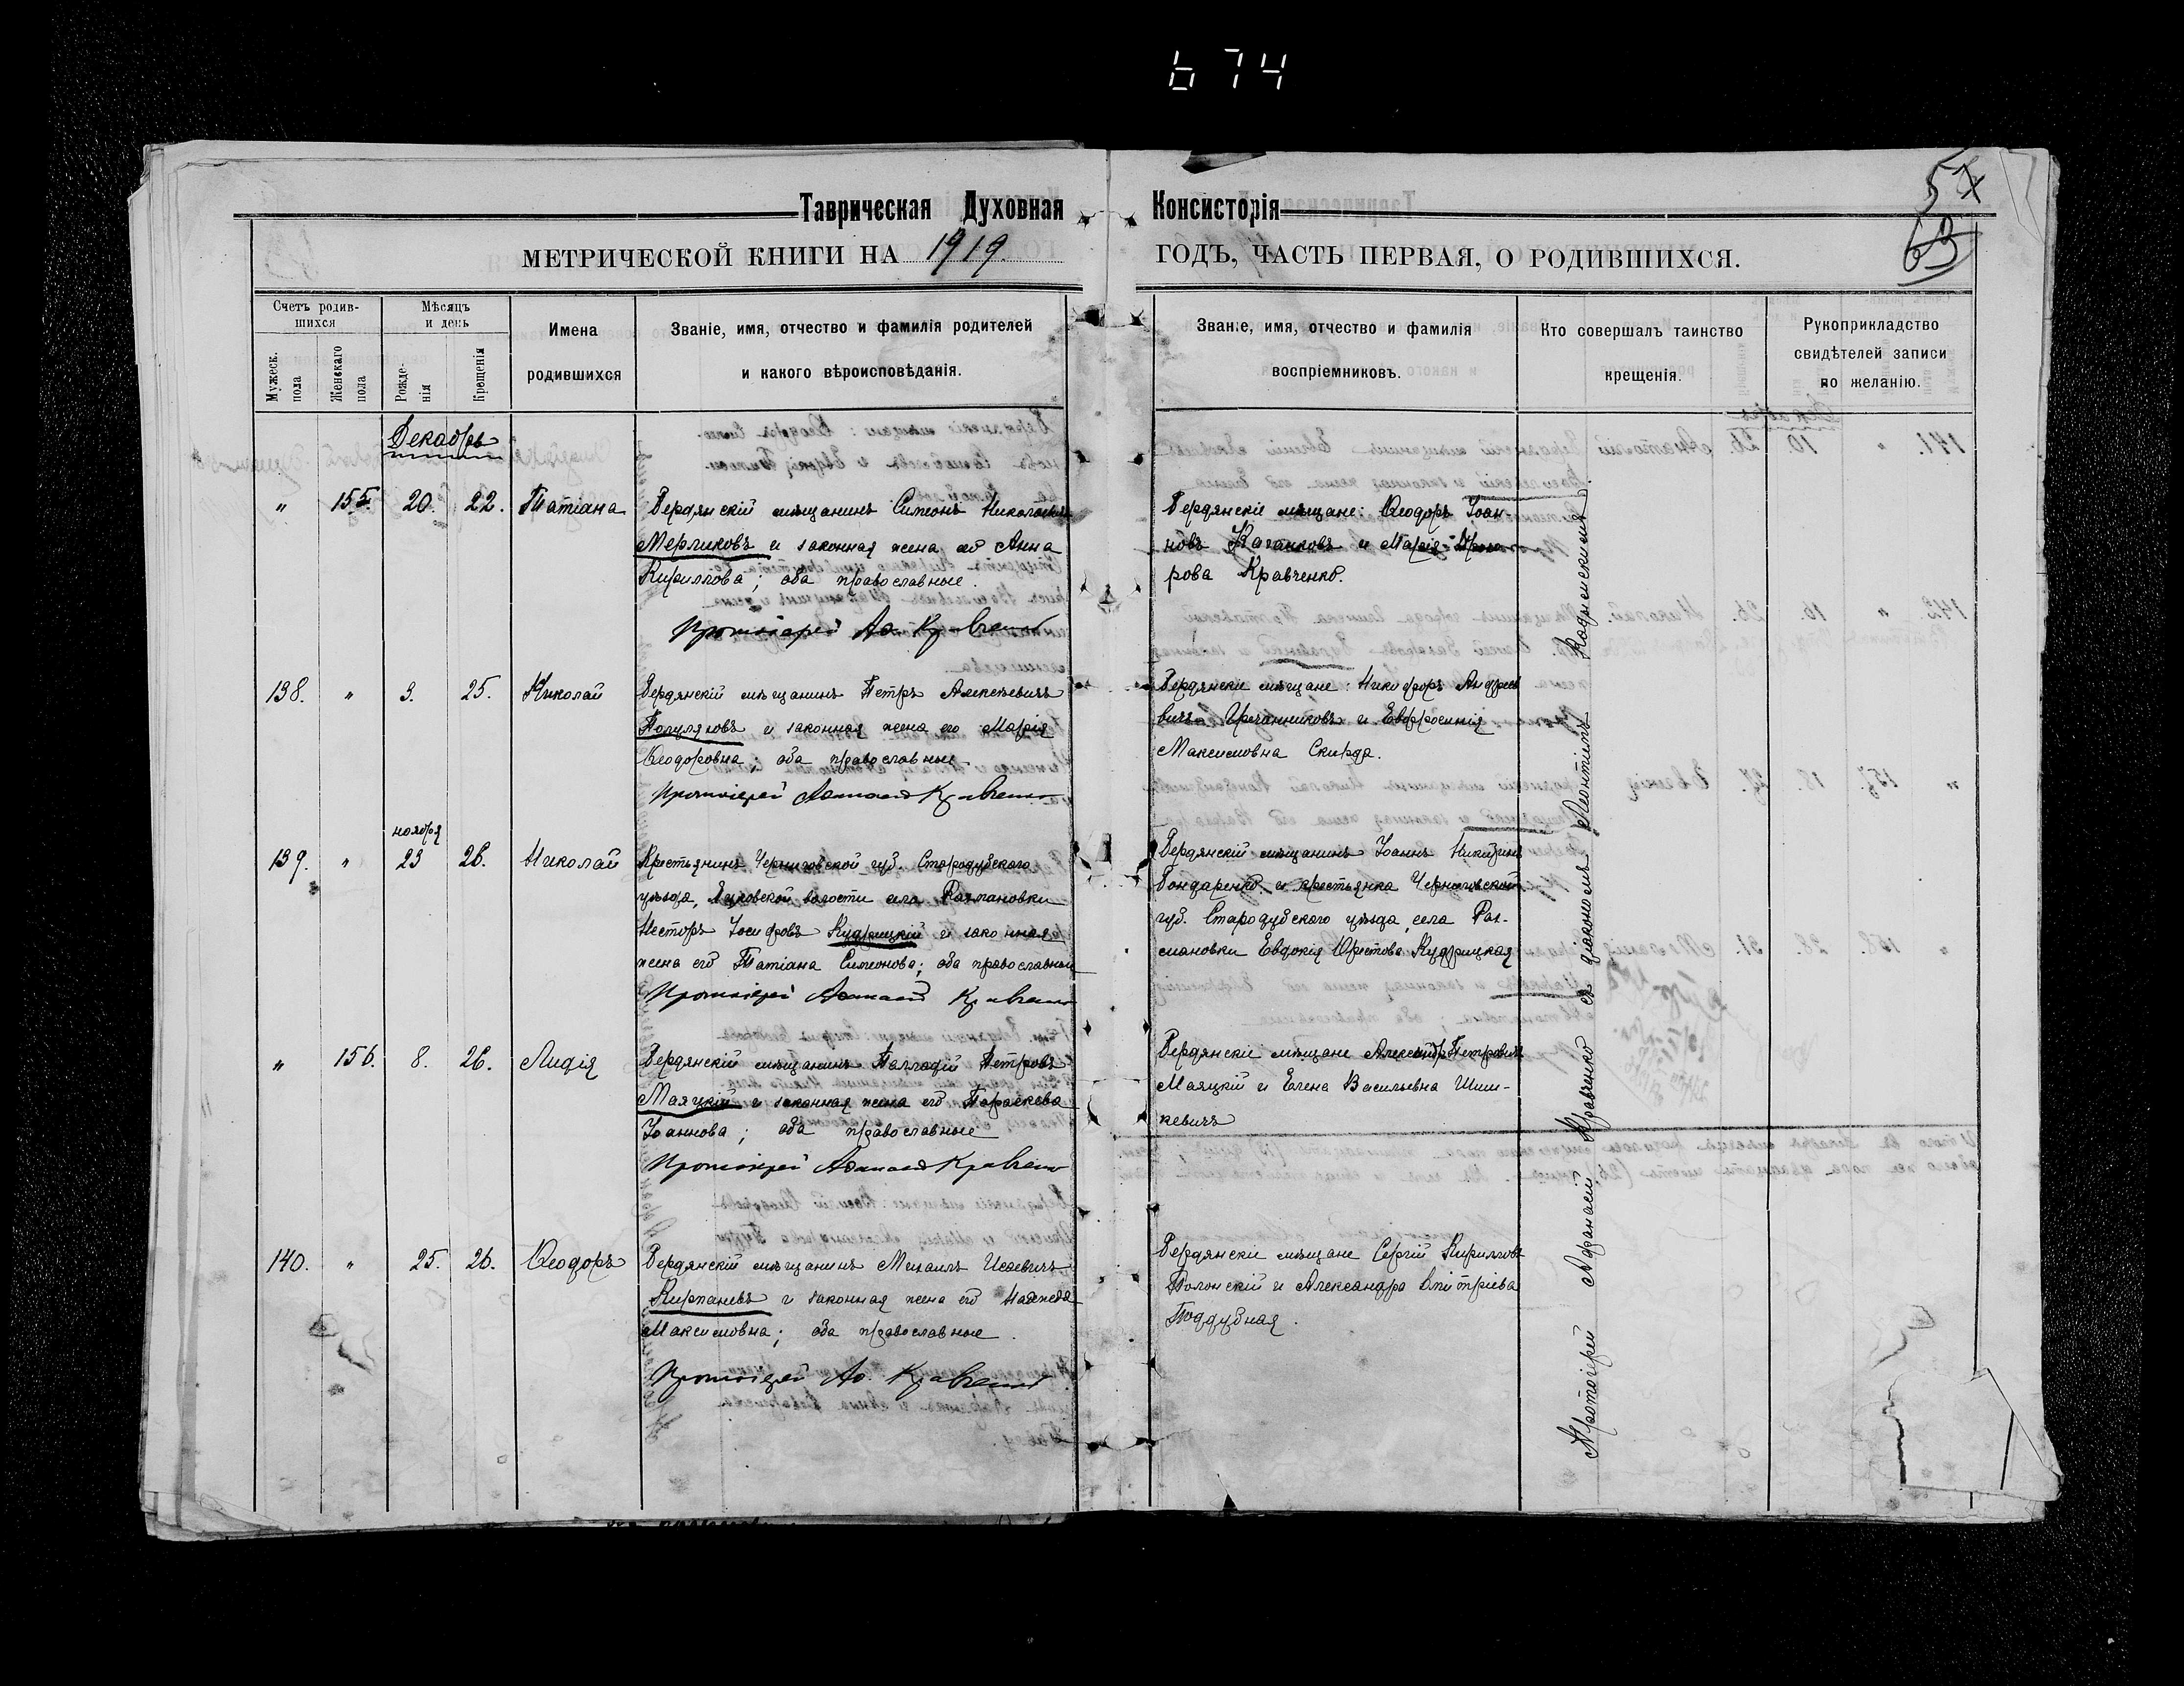 674
57
63
Таврическая Духовная Консисторія
МЕТРИЧЕСКОЙ КНИГИ НА 1919 ГОДЪ, ЧАСТЬ ПЕРВАЯ, О РОДИВШИХСЯ.
Счетъ родив-
шихся
Мужеск.
пола
Женскаго
пола
Мѣсяцъ
и день
Рожде-
нія
Крещенія
Имена
родившихся
Званіе, имя, отчество и фамилія родителей
и какого вѣроисповѣданія.
Званіе, имя, отчество и фамилія
воспріемниковъ.
Кто совершалъ таинство
крещенія.
Рукоприкладство
свидѣтелей записи
по желанію.
Декабрь
" 155. 20. 22. Татіана
Бердянскій мѣщанинъ Симеонъ Николаевъ
Мерликовъ и законная жена его Анна
Кириллова; оба православные.
Протоіерей Аѳ. Кравченко
Бердянскіе мѣщане: Ѳеодоръ Іоан-
новъ и Марія
рова Кравченко.
138. " 3. 25. Николай
Бердянскій мѣщанинъ Петръ Алексѣевичъ
и законная жена его Марія
Ѳеодоровна; оба православные.
Протоіерей Аѳанасій Кравченко
Бердянскіе мѣщане: Никифоръ Андрее
вичъ Гречанниковъ и Евфросинія
Максимовна Скирда.
ноября
139. " 23 26. Николай
Крестьянинъ Черниговской губ. Стародубскаго
уѣзда, волости села Рахмановки
Несторъ Іосифовъ Кудрицкій и законная
жена его Татіана Симеонова; оба православные
Протоіерей Аѳанасій Кравченко
Бердянскій мѣщанинъ Іоаннъ Никитинъ
Бондаренко и крестьянка Черниговской
губ. Стародубскаго уѣзда, села Рах-
мановки Евдокія Кудрицкая
" 156. 8. 26. Лидія
Бердянскій мѣщанинъ Палладій Петровъ
Маяцкій и законная жена его Параскева
Іоаннова; оба православные
Протоіерей Аѳанасій Кравченко
Бердянскіе мѣщане Александръ Петровичъ
Маяцкій и Елена Васильевна Шим-
кевичъ
140. " 25. 26. Ѳеодоръ
Бердянскій мѣщанинъ Михаилъ Исаевичъ
и законная жена его Надежда
Максимовна; оба православные.
Протоіерей Аѳ. Кравченко
Бердянскіе мѣщане Сергій Кирилловъ
Полонскій и Александра Дмитріева
Поддубная.
Протоіерей Аѳанасій Кравченко съ діакономъ Леонтіемъ